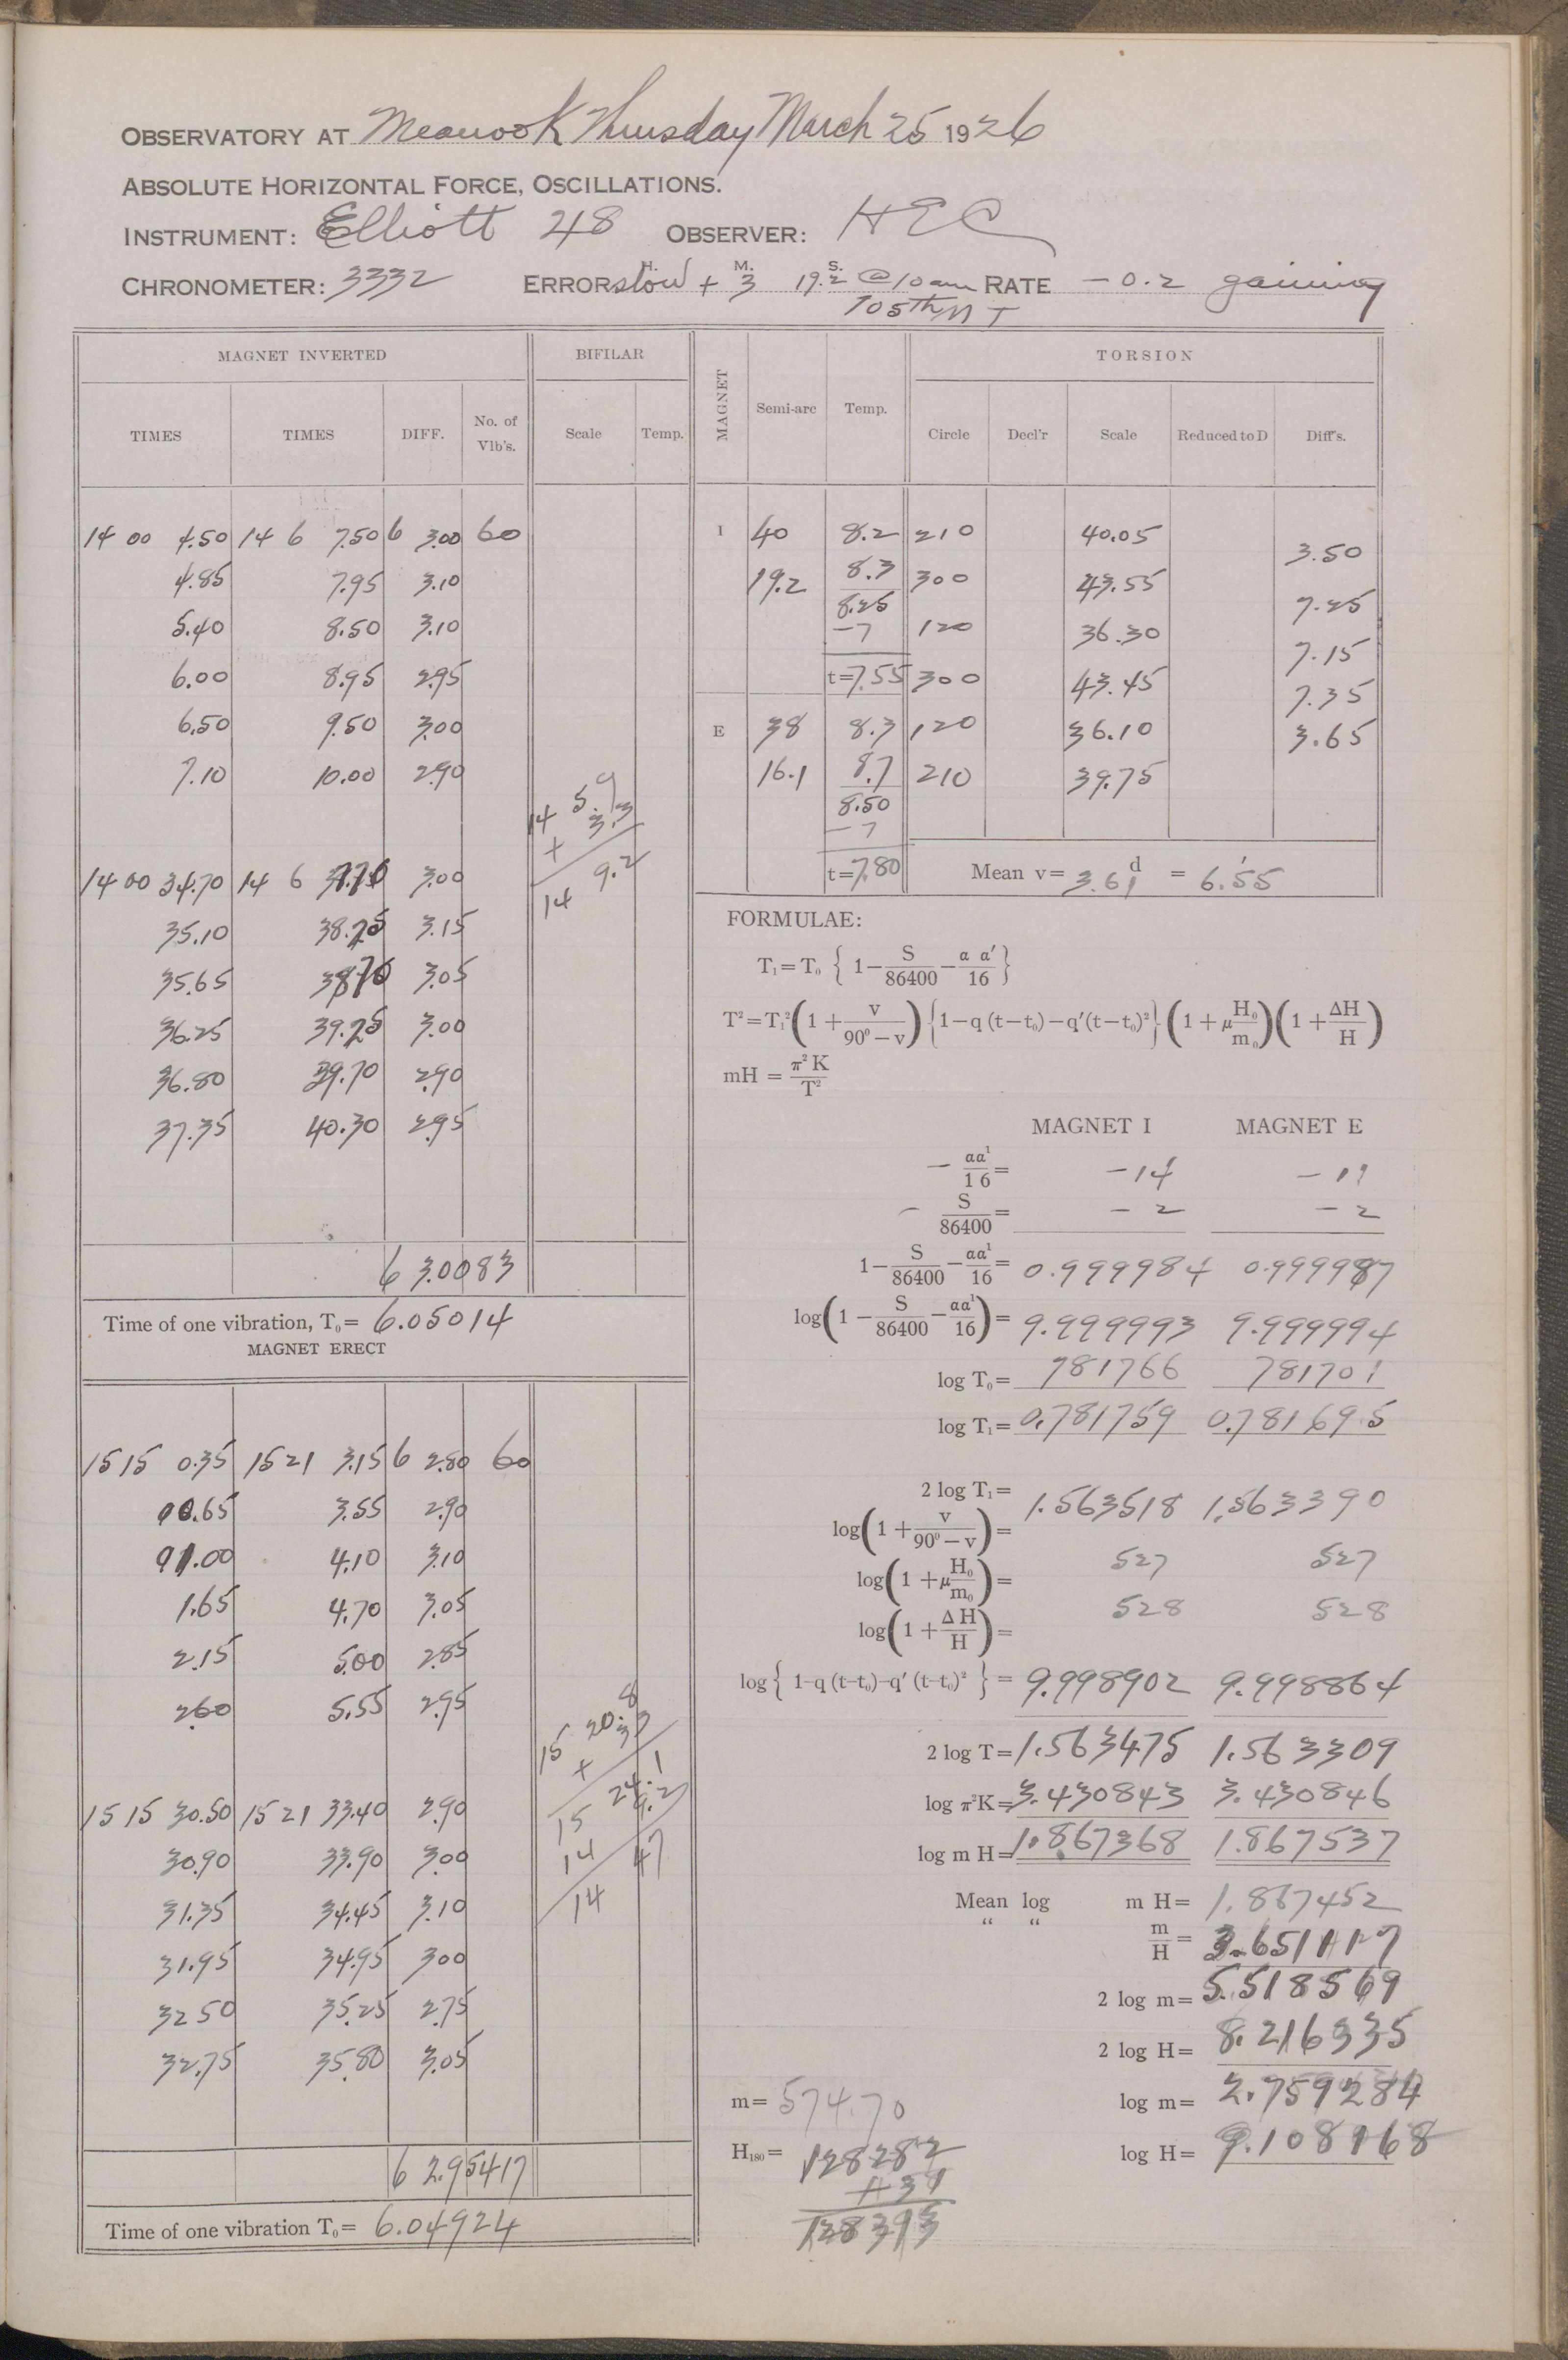 OBSERVATORY AT Meanook Thursday March 25 1926
ABSOLUTE HORIZONTAL FORCE, OSCILLATIONS.
INSTRUMENT: Elliott 48 OBSERVER: HEC
CHRONOMETER: 3332 ERROR slow + H. M. 3 S. 19.2 @ 10 am RATE -0.2 gaining
105th M T
MAGNET INVERTED BIFILAR
TIMES TIMES DIFF. No. of Vib's. Scale Temp.
14 00 4.50 14 6 7.50 6 3.00 60
4.85 7.95 3.10
5.40 8.50 3.10
6.00 8.95 2.95
6.50 9.50 3.00
7.10 10.00 2.90
14 5.9
+ 3.3
14 9.2
14 00 34.70 14 6 37.70 3.00
35.10 38.25 3.15
35.65 38.70 3.05
36.25 39.25 3.00
36.80 39.70 2.90
37.35 40.30 2.95
6 3.0083
Time of one vibration, T₀= 6.05014
MAGNET ERECT
15 15 0.35 15 21 3.15 6 2.80 60
00.65 3.55 2.90
01.00 4.10 3.10
1.65 4.70 3.05
2.15 5.00 2.85
2.60 5.55 2.95
15 20.8
+ 3.3
15 24.1
14 9.2
14 47
15 15 30.50 15 21 33.40 2.90
30.90 33.90 3.00
31.35 34.45 3.10
31.95 34.95 3.00
32 50 35.25 2.75
32.75 35.80 3.05
6 2.95417
Time of one vibration T₀= 6.04924
MAGNET Semi-arc Temp. TORSION
Circle Decl'r Scale Reduced to D Diff's.
I 40 8.2 210 40.05
3.50
19.2 8.3 300 43.55
8.25
7.25
-7 120 36.30
7.15
t=7.55 300 43.45
7.35
E 38 8.3 120 36.10
3.65
16.1 8.7 210 39.75
8.50
-7
t=7.80 Mean v= 3.61 d = 6.55'
FORMULAE:
T₁=T₀ { 1-S/86400-α α'/16 }
T²=T₁²(1+v/90°-v){1-q (t-t₀)-q'(t-t₀)²}(1+μH₀/m₀)(1+ΔH/H)
mH = π² K/T²
MAGNET I MAGNET E
- αα¹/16= -14 -11
- S/86400= -2 -2
1-S/86400-αα¹/16= 0.999984 0.999987
log(1-S/86400-αα¹/16)= 9.999993 9.999994
log T₀= 781766 781701
log T₁= 0.781759 0.781695
2 log T₁= 1.563518 1.563390
log(1+v/90°-v)= 527 527
log(1+μH₀/m₀)= 528 528
log(1+ΔH/H)=
log{ 1-q (t-t₀)-q' (t-t₀)² } = 9.998902 9.998864
2 log T= 1.563475 1.563309
log π²K= 3.430843 3.430846
log m H= 1.867368 1.867537
Mean log m H= 1.867452
“ “ m/H= 3.651117
2 log m= 5.518569
2 log H= 8.216335
log m= 2.759284
log H= 9.108168
m= 574.70
H₁₈₀= 128282
+31
128313